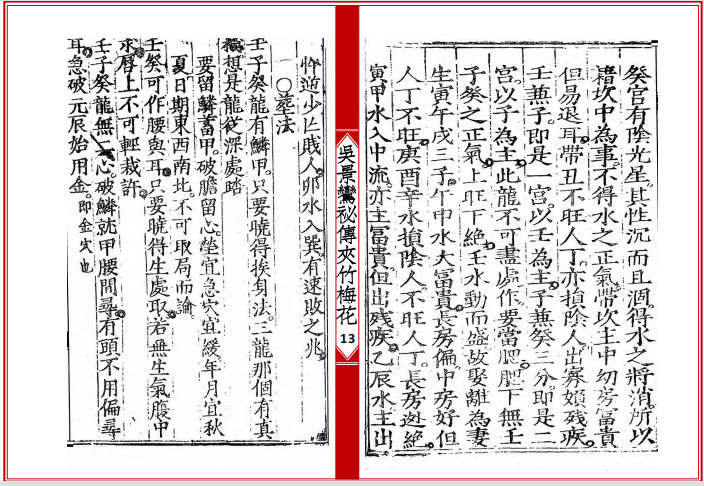 癸宮有陰光星其性沉而且涸得水之將消所以
藉坎中為事不得水之正氣帶坎主中幼房富貴
但易退耳帶丑不旺人丁亦損陰人出寡婦残疾
壬兼子即是一宮以壬為主子兼癸三分即是二
宮以子為主此龍不可盡處作要當肥肥下無壬
子癸之正氣上旺下絶壬水動而盛故娶離為妻
生寅午戌三子午中水大富貴長房偏中房好但
人丁不旺庚酉辛水損陰人不旺人丁長房迯絶
寅甲水入中流亦主冨貴但出残疾乙辰水主出
吳景鸞祕傳夾竹梅花
13
忤逆少亡賊人卯水入巽有速敗之兆
○葬法
壬子癸龍有鱗甲只要曉得挨身法三龍那個有真
想是龍從深處踏
要留鱗蓄甲破膽留心塟宜急穴宜緩年月宜秋
夏日期東西南北不可取局而論
壬癸可作腰與耳只要曉得生處取若無生氣腹中
求唇上不可輕裁許
壬子癸龍無心破鱗就甲腰間尋有頭不用偏尋
耳急破元辰始用金即金穴也